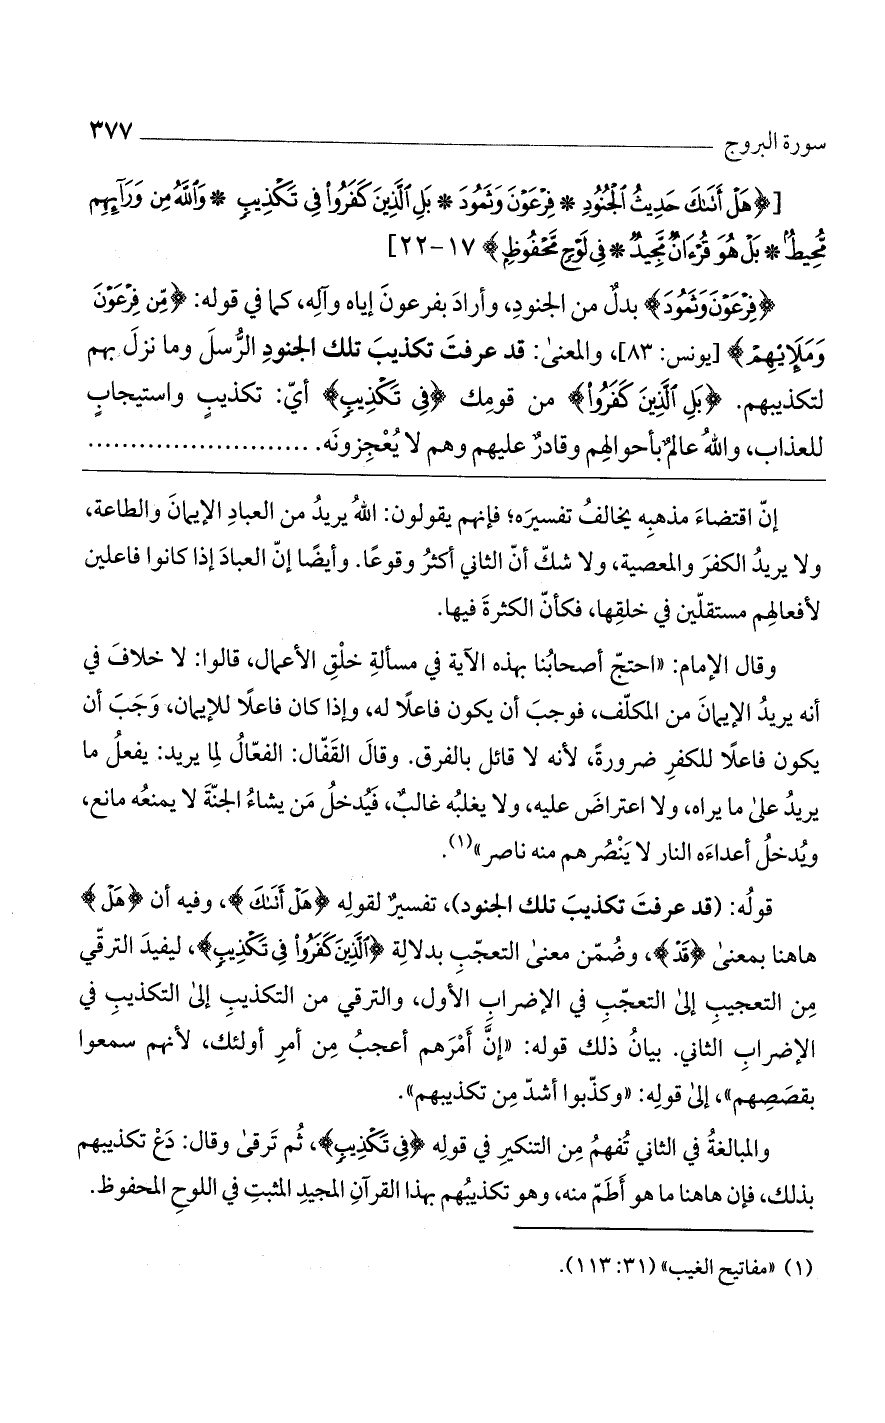 سورة البروج ٣٧٧
[﴿هَلْ أَتَىٰكَ حَدِيثُ ٱلْجُنُودِ * فِرْعَوْنَ وَثَمُودَ * بَلِ ٱلَّذِينَ كَفَرُوا۟ فِى تَكْذِيبٍ * وَٱللَّهُ مِن وَرَآئِهِم
مُّحِيطٌۢ * بَلْ هُوَ قُرْءَانٌ مَّجِيدٌ * فِى لَوْحٍ مَّحْفُوظٍ﴾ ١٧-٢٢]
﴿فِرْعَوْنَ وَثَمُودَ﴾ بدلٌ من الجنودِ، وأرادَ بفرعونَ إياه وآلِه، كما في قوله: ﴿مِّن فِرْعَوْنَ
وَمَلَإِيْهِمْ﴾ [يونس: ٨٣]، والمعنىٰ: قد عرفتَ تكذيبَ تلك الجنودِ الرُّسلَ وما نزلَ بهم
لتكذيبهم. ﴿بَلِ ٱلَّذِينَ كَفَرُوا۟﴾ من قومِك ﴿فِى تَكْذِيبٍ﴾ أيّ: تكذيبٍ واستيجابٍ
للعذاب، واللهُ عالمٌ بأحوالِهم وقادرٌ عليهم وهم لا يُعْجِزونَه. ..........................
إنّ اقتضاءَ مذهبِه يخالفُ تفسيرَه؛ فإنهم يقولون: اللهُ يريدُ من العبادِ الإيمانَ والطاعة،
ولا يريدُ الكفرَ والمعصية، ولا شكّ أنّ الثاني أكثرُ وقوعًا. وأيضًا إنّ العبادَ إذا كانوا فاعلين
لأفعالِهم مستقلّين في خلقِها، فكأنّ الكثرةَ فيها.
وقال الإمام: «احتجّ أصحابُنا بهذه الآية في مسألةِ خلْقِ الأعمال، قالوا: لا خلافَ في
أنه يريدُ الإيمانَ من المكلّف، فوجبَ أن يكون فاعلًا له، وإذا كان فاعلًا للإيمان، وَجَبَ أن
يكون فاعلًا للكفرِ ضرورةً، لأنه لا قائل بالفرق. وقالَ القَفّال: الفعّالُ لِما يريد: يفعلُ ما
يريدُ علىٰ ما يراه، ولا اعتراضَ عليه، ولا يغلبُه غالبٌ، فيُدخلُ مَن يشاءُ الجنّةَ لا يمنعُه مانع،
ويُدخلُ أعداءَه النار لا يَنْصُرهم منه ناصر»(١).
قولُه: (قد عرفتَ تكذيبَ تلك الجنود)، تفسيرٌ لقولِه ﴿هَلْ أَتَىٰكَ﴾، وفيه أن ﴿هَلْ﴾
هاهنا بمعنىٰ ﴿قَدْ﴾، وضُمّن معنىٰ التعجّبِ بدلالةِ ﴿ٱلَّذِينَ كَفَرُوا۟ فِى تَكْذِيبٍ﴾، ليفيدَ الترقّي
مِن التعجيبِ إلىٰ التعجّبِ في الإضرابِ الأول، والترقي من التكذيبِ إلىٰ التكذيبِ في
الإضرابِ الثاني. بيانُ ذلك قوله: «إنَّ أَمْرَهم أعجبُ مِن أمرِ أولئك، لأنهم سمعوا
بقصَصِهم»، إلىٰ قولِه: «وكذّبوا أشدّ مِن تكذيبهم».
والمبالغةُ في الثاني تُفهمُ مِن التنكيرِ في قولِه ﴿فِى تَكْذِيبٍ﴾، ثُم تَرقىٰ وقال: دَعْ تكذيبهم
بذلك، فإن هاهنا ما هو أَطَمّ منه، وهو تكذيبُهم بهذا القرآنِ المجيدِ المثبتِ في اللوحِ المحفوظ.
(١) «مفاتيح الغيب» (٣١: ١١٣).